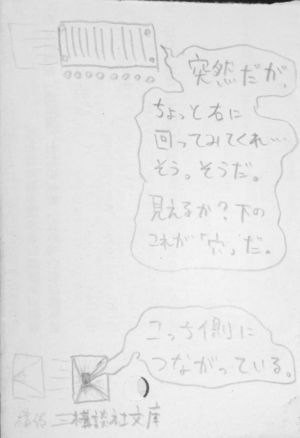 突然だが、
ちょっと右に
回ってみてくれ…
そう。そうだ。
見えるか?下の
これが「穴」だ。
こっち側に
つながっている。
講談社文庫